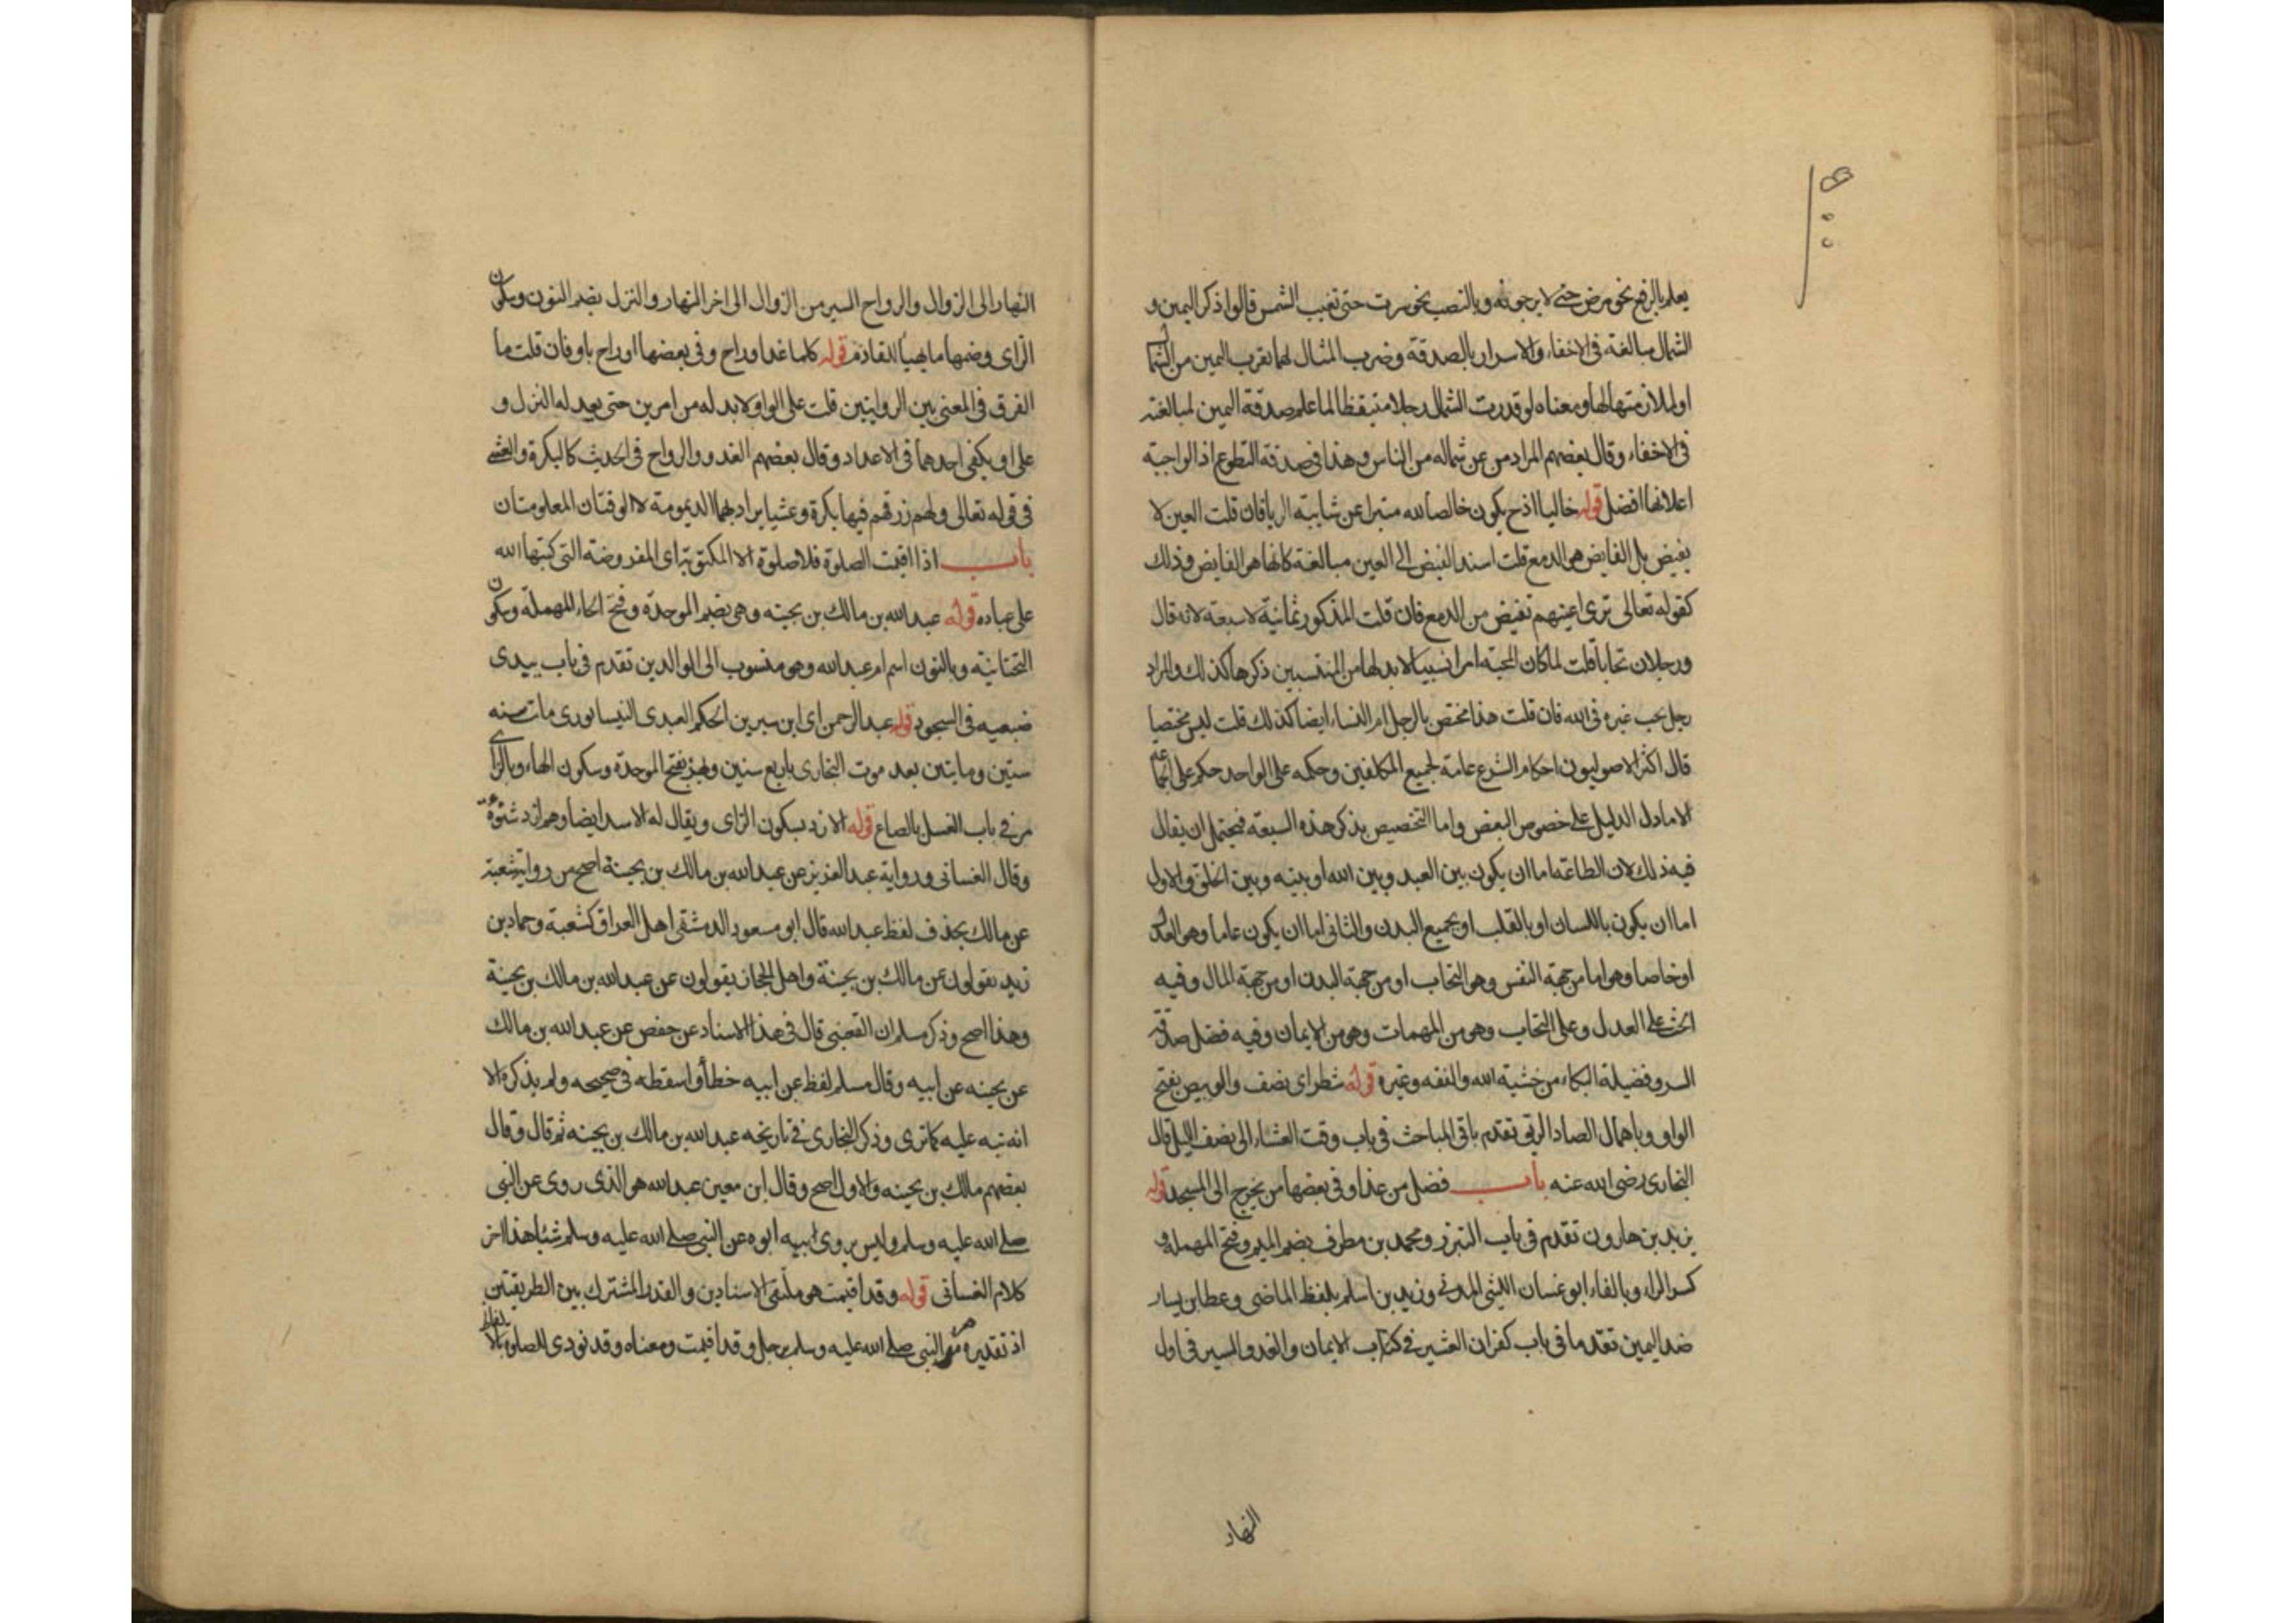 يعلم بالرفع نحو مرض حتى لا يرجونه وبالنصب نحو سرت حتى تغيب الشمس قالوا ذكر اليمين و
الشمال مبالغة في الاخفاء والاسرار بالصدقة وضرب المثال لهما لقرب اليمين من الشمال
اولملازمتها لها ومعناه لو قدرت الشمال رجلا متيقظا لما علم صدقة اليمين لمبالغته
في الاخفاء وقال بعضهم المراد من عن شماله من الناس وهذا في صدقة التطوع اذ الواجبة
اعلانها افضل قوله خاليا اذح يكون خالصا لله مبترا عن شايبة الريا فان قلت العين لا
يفيض بل الفايض هو الدمع قلت اسند الفيض الى العين مبالغة كانها هو الفايض وذلك
كقوله تعالى ترى اعينهم تفيض من الدمع فان قلت المذكور ثمانية لا سبعة لانه قال
ورجلان تحابا قلت لما كان المحبة امرا نسبيا لابد لها من المنتسبين ذكرها كذلك والمراد
رجل يحب غيره في الله فان قلت هذا مختص بالرجل ام النساء ايضا كذلك قلت ليس مختصا
قال اكثر الاصوليون احكام الشرع عامة لجميع المكلفين وحكمه على الواحد حكم على الجماعة
الا ما دل الدليل على خصوص البعض واما التخصيص بذكر هذه السبعة فيحتمل ان يقال
فيه ذلك لان الطاعة اما ان يكون بين العبد وبين الله او بينه وبين الخلق والاول
اما ان يكون باللسان او بالقلب او بجميع البدن والثاني اما ان يكون عاما وهو العدل
او خاصا وهو اما من جهة النفس وهو التحاب او من جهة البدن او من جهة المال وفيه
الحث على العدل وعلى التحاب وهو من المهمات وهو من الايمان وفيه فضل صدقة
السر وفضيلة البكاء من خشية الله والنفقه وغيره قوله شطر اى نصف والوبيص بفتح
الواو وباهمال الصاد البريق تقدم باقي المباحث في باب وقت العشاء الى نصف الليل قال
البخارى رضى الله عنه باب فضل من غدا وفي بعضها من يخرج الى المسجد قوله
يزيد بن هارون تقدم في باب التبرز ومحمد بن مطرف بضم الميم وفتح المهملة و
كسر الراء وبالفاء ابو غسان الليثي المدني وزيد بن اسلم بلفظ الماضى وعطا بن يسار
ضد اليمين تقدما في باب كفران العشير في كتاب الايمان والغدو السير في اول
النهار
النهار الى الزوال والرواح السير من الزوال الى اخر النهار والنزل بضم النون وسكون
الزاى وضمها ما يهيأ للقادم قوله كلما غدا وراح وفي بعضها او راح باو فان قلت ما
الفرق في المعنى بين الروايتين قلت على الواو لابد له من امرين حتى يعد له النزل و
على او يكفي احدهما في الاعداد وقال بعضهم الغدو والرواح في الحديث كالبكرة والعشى
في قوله تعالى ولهم رزقهم فيها بكرة وعشيا يراد بهما الديمومة لا الوقتان المعلومتان
باب اذا اقيمت الصلوة فلا صلوة الا المكتوبة اى المفروضة التي كتبها الله
على عباده قوله عبد الله بن مالك بن بحينه وهي بضم الموحدة وفتح الحاء المهملة وسكون
التحتانية وبالنون اسم ام عبد الله وهو منسوب الى الوالدين تقدم في باب يبدى
ضبعيه في السجود قوله عبد الرحمن اى ابن الحكم العبدى النيسابورى مات سنه
ستين ومايتين بعد موت البخارى باربع سنين وبهز بفتح الموحدة وسكون الهاء وبالزاى
مر في باب الغسل بالصاع قوله الازد بسكون الزاى ويقال له الاسد ايضا وهم ازد شنوءة
وقال الغسانى ورواية عبد العزيز عن عبد الله بن مالك بن بحينة اصح من رواية شعبة
عن مالك بحذف لفظ عبد الله قال ابو مسعود الدمشقى اهل العراق كشعبة وحماد بن
زيد يقولون عن مالك بن بحينة واهل الحجاز يقولون عن عبد الله بن مالك بن بحينة
وهذا اصح وذكر مسلم ان القعنبى قال في هذا الاسناد عن حفص عن عبد الله بن مالك
عن بحينه عن ابيه وقال مسلم لفظ عن ابيه خطأ واسقطه في صحيحه ولم يذكره الا
انه نبه عليه كما ترى وذكر البخارى في تاريخه عبد الله بن مالك بن بحينه ثم قال وقال
بعضهم مالك بن بحينه والاول اصح وقال ابن معين عبد الله هو الذى روى عن النبي
صلى الله عليه وسلم وليس يروى ابيه ابوه عن النبي صلى الله عليه وسلم شيئا هذا اخر
كلام الغسانى قوله وقد اقيمت هو ملتقى الاسنادين والقدر المشترك بين الطريقتين
اذ تقديره مر النبي صلى الله عليه وسلم برجل وقد اقيمت ومعناه وقد نودى للصلوة بالالفاظ